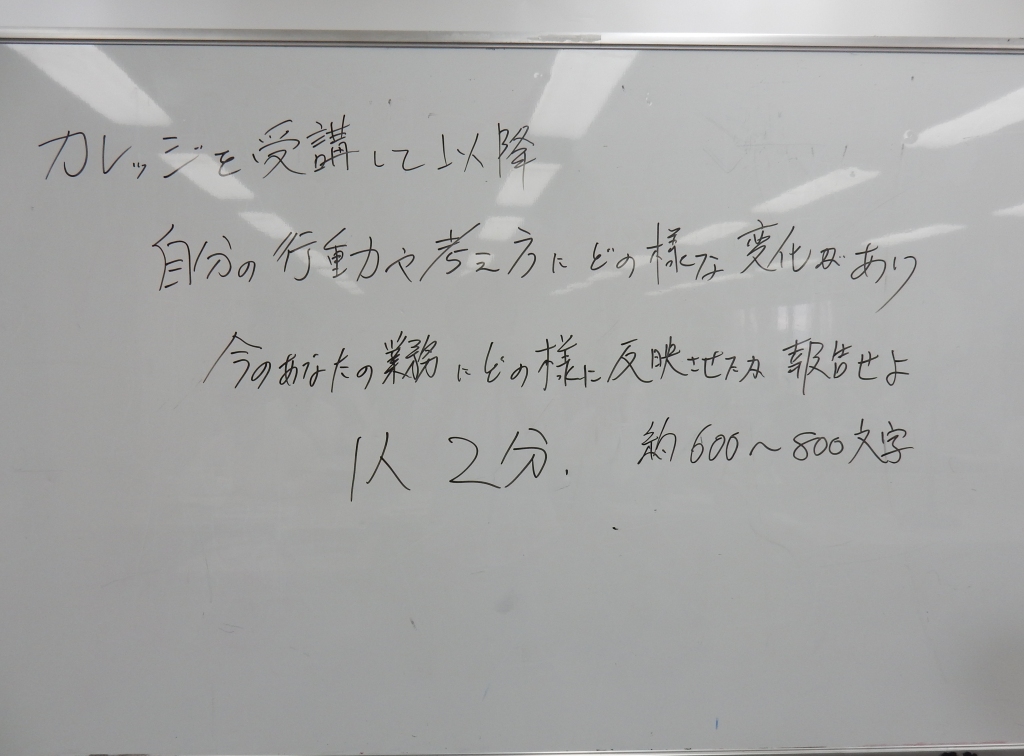 カレッジを受講して以降
自分の行動や考え方にどの様な変化があり
今のあなたの業務にどの様に反映させたか 報告せよ
1人 2分. 約600〜800文字